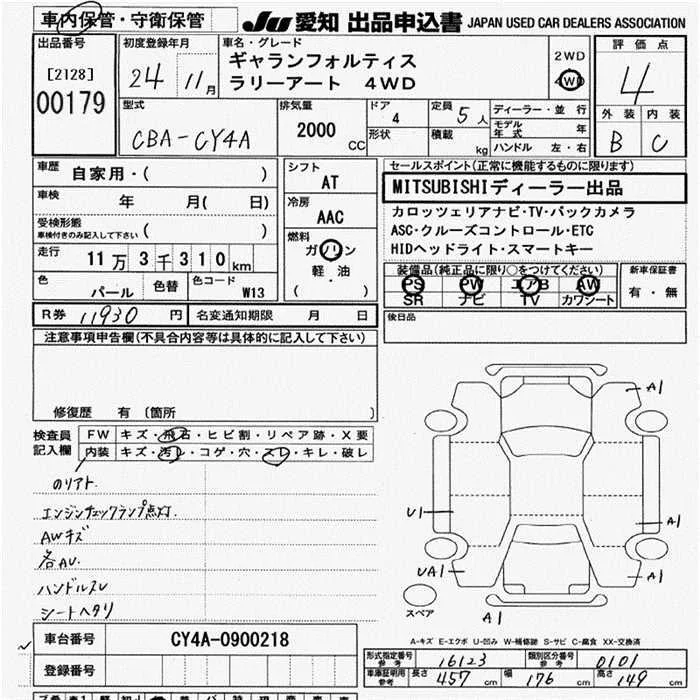 車内保管・守衛保管
Ju 愛知 出品申込書 JAPAN USED CAR DEALERS ASSOCIATION
出品番号
[2128]
00179
初度登録年月
24 11月
車名・グレード
ギャランフォルティス
ラリーアート 4WD
2WD
4WD
評価点
4
外装 内装
B C
型式
CBA-CY4A
排気量
2000 CC
ドア
4
形状
定員
5人
積載
kg
ディーラー・並行
モデル年式 年
ハンドル 左・右
車歴
自家用・( )
車検
年 月( 日)
受検形態
車検付きのみ記入して下さい ( )
走行
11万3千310km
色
パール
色替
色コード
W13
シフト
AT
冷房
AAC
燃料
ガソリン
軽・油
( )
セールスポイント(正常に機能するものに限ります)
MITSUBISHIディーラー出品
カロッツェリアナビ・TV・バックカメラ
ASC・クルーズコントロール・ETC
HIDヘッドライト・スマートキー
装備品(純正品に限り○をつけてください)
PS PW エアB AW
SR ナビ TV カワシート
新車保証書
有・無
R券 11930円 名変通知期限 月 日
後日品
注意事項申告欄(不具合内容等は具体的に記入して下さい)
修復歴 有 〔箇所 〕
検査員
記入欄
FW キズ・飛石・ヒビ割・リペア跡・X要
内装 キズ・汚レ・コゲ・穴・スレ・キレ・破レ
のりアト.
エンジンチェックランプ点灯.
AWキズ
各AU.
ハンドルスレ
シートヘタリ
A1
U1
A1
UA1
A1
スペア
A1
A-キズ E-エクボ U-凹み W-補修跡 S-サビ C-腐食 XX-交換済
車台番号 CY4A-0900218
登録番号
形式指定番号
参考
16123
類別区分番号
参考
0101
車庫証明用
参考
長さ 457 cm 幅 176 cm 高さ 149 cm